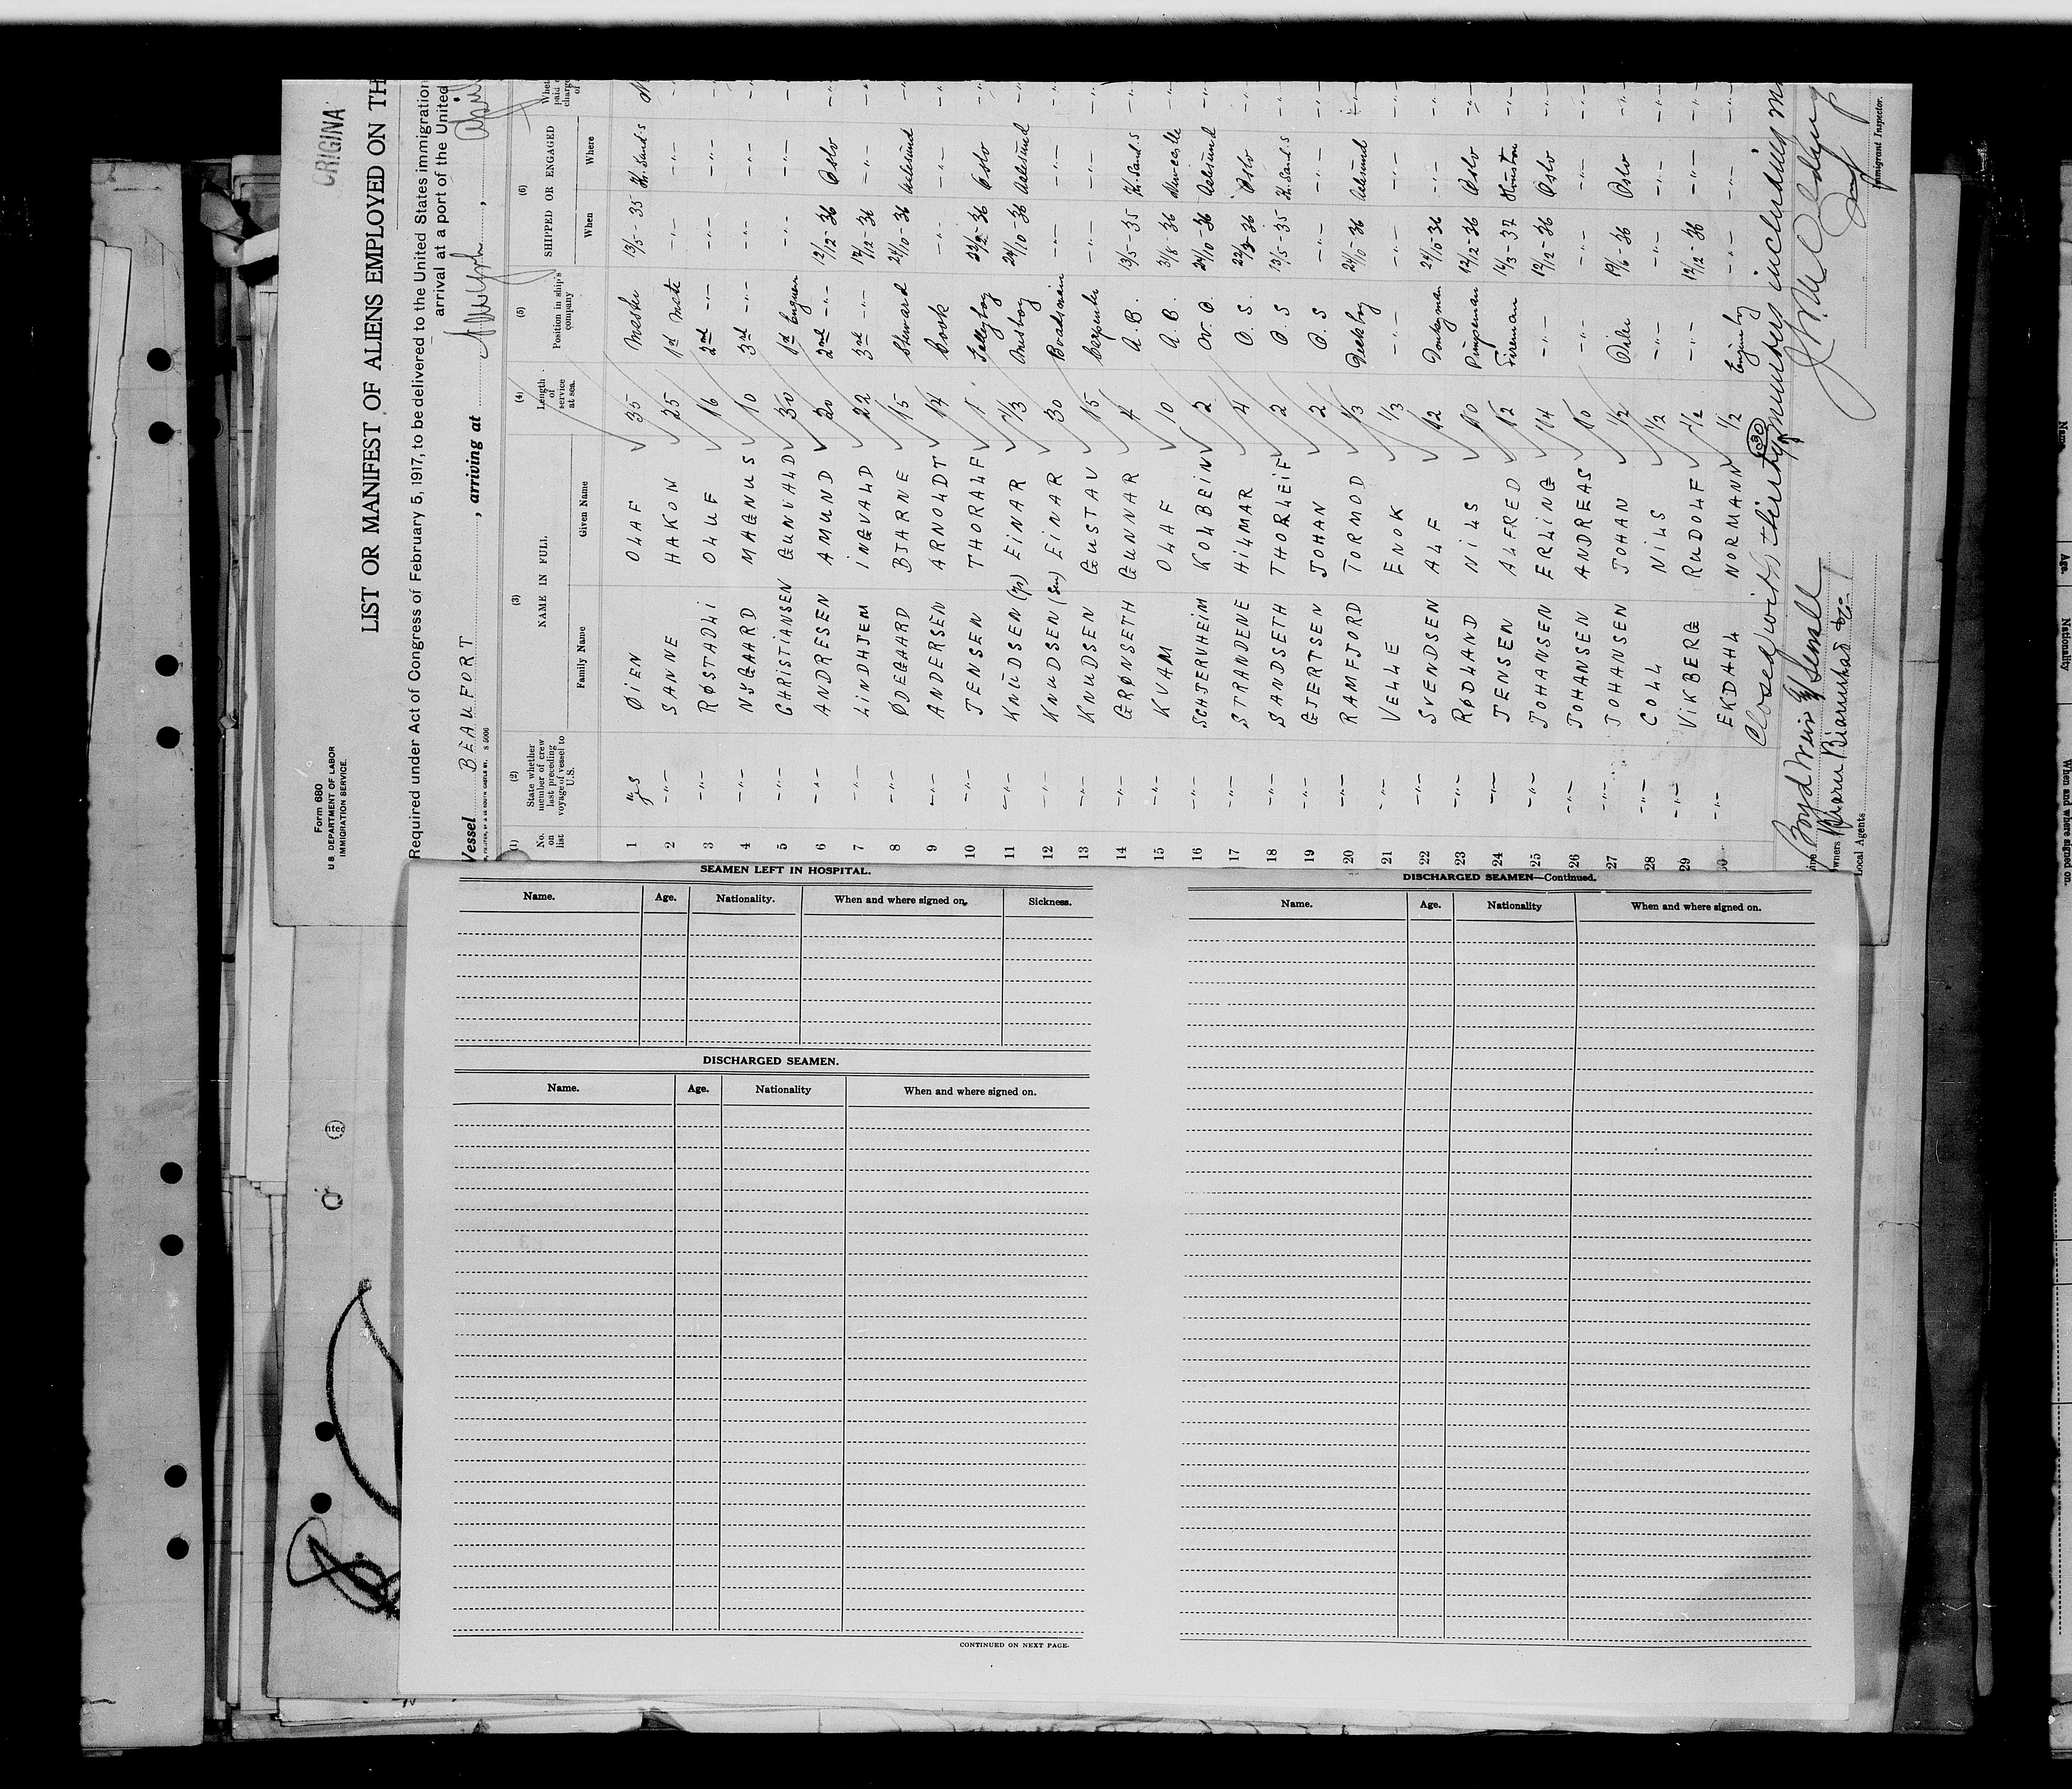 ORIGINA
Form 680
U.S. DEPARTMENT OF LABOR
IMMIGRATION SERVICE.
LIST OR MANIFEST OF ALIENS EMPLOYED ON TH
Required under Act of Congress of February 5, 1917, to be delivered to the United States immigration
arrival at a port of the United
Vessel BEAUFORT , arriving at
(1) No. on list (2) State whether member of crew last preceding voyage of vessel to U.S. (3) NAME IN FULL Family Name Given Name (4) Length of service at sea. (5) Position in ship's company (6) SHIPPED OR ENGAGED When Where
1 yes ØIEN OLAF 35 Master 13/5-35 Kr.Sand.s
2 -"- SANNE HAKON 25 1st Mate -"- -"-
3 -"- RØSTADLI OLUF 16 2nd -"- -"- -"-
4 -"- NYGAARD MAGNUS 10 3rd -"- -"- -"-
5 -"- CHRISTIANSEN GUNVALD 30 1st Engineer -"- -"-
6 -"- ANDRESEN AMUND 20 2nd -"- 12/12-36 Oslo
7 -"- LINDHJEM INGVALD 22 3rd -"- 12/12-36 -"-
8 -"- ØDEGAARD BJARNE 15 Steward 24/10-36 Aalesund
9 -"- ANDERSEN ARNOLDT 14 Cook -"- -"-
10 -"- JENSEN THORALF 1 Galleyboy Oslo
11 -"- KNUDSEN (jr) EINAR 1/3 Messboy 24/10-36 Aalesund
12 -"- KNUDSEN (Sen) EINAR 30 Boatswain -"- -"-
13 -"- KNUDSEN GUSTAV 15 Carpenter -"- -"-
14 -"- GRØNSETH GUNNAR 4 A.B. 13/5-35 Kr.Sand.s
15 -"- KVAM OLAF 10 A.B. 31/8-36 Newcastle
16 -"- SCHJERVHEIM KOLBEIN 2 O. 24/10-36 Aalesund
17 -"- STRANDENE HILMAR 4 O.S. Oslo
18 -"- SANDSETH THORLEIF 2 O.S 13/5-35 Kr.Sand.s
19 -"- GJERTSEN JOHAN 2 O.S -"- -"-
20 -"- RAMFJORD TORMOD 1/3 Deckboy 24/10-36 Aalesund
21 -"- VELLE ENOK 1/3 -"- -"- -"-
22 -"- SVENDSEN ALF 12 Donkeyman 24/10-36 -"-
23 -"- RØDLAND NILS 10 Pumpeman 12/12-36 Oslo
24 -"- JENSEN ALFRED 12 Fireman 16/3-37 Houston
25 -"- JOHANSEN ERLING 14 -"- 12/12-36 Oslo
26 -"- JOHANSEN ANDREAS 10 -"- -"- -"-
27 -"- JOHANSEN JOHAN 1/2 Oiler 19/6-36 Oslo
28 -"- COLL NILS 1/2 -"- -"- -"-
29 -"- VIKBERG RUDOLF 1/2 -"- 12/12-36 -"-
30 -"- EKDAHL NORMANN 1/2 Engineboy -"- -"-
Closed with thirty (30) members including
Boyd Weir & Sewell
wners
Local Agents
Immigrant Inspector.
SEAMEN LEFT IN HOSPITAL.
Name. Age. Nationality. When and where signed on. Sickness.
DISCHARGED SEAMEN.
Name. Age. Nationality When and where signed on.
CONTINUED ON NEXT PAGE.
DISCHARGED SEAMEN—Continued.
Name. Age. Nationality When and where signed on.